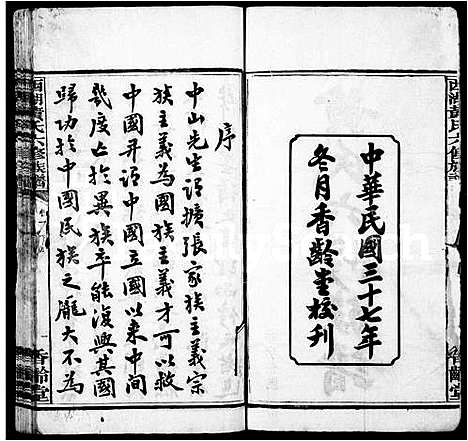 中華民國三十七年
冬月香齡堂校刊
序
中山先生謂擴張家族主義宗
族主義為國族主義才可以救
中國并謂中國立國以來中間
幾度亡於異族卒能復興其國
歸功於中國民族之龐大不為
西湖黃氏六修族譜
香齡堂
西湖黃氏六修族譜
香齡堂